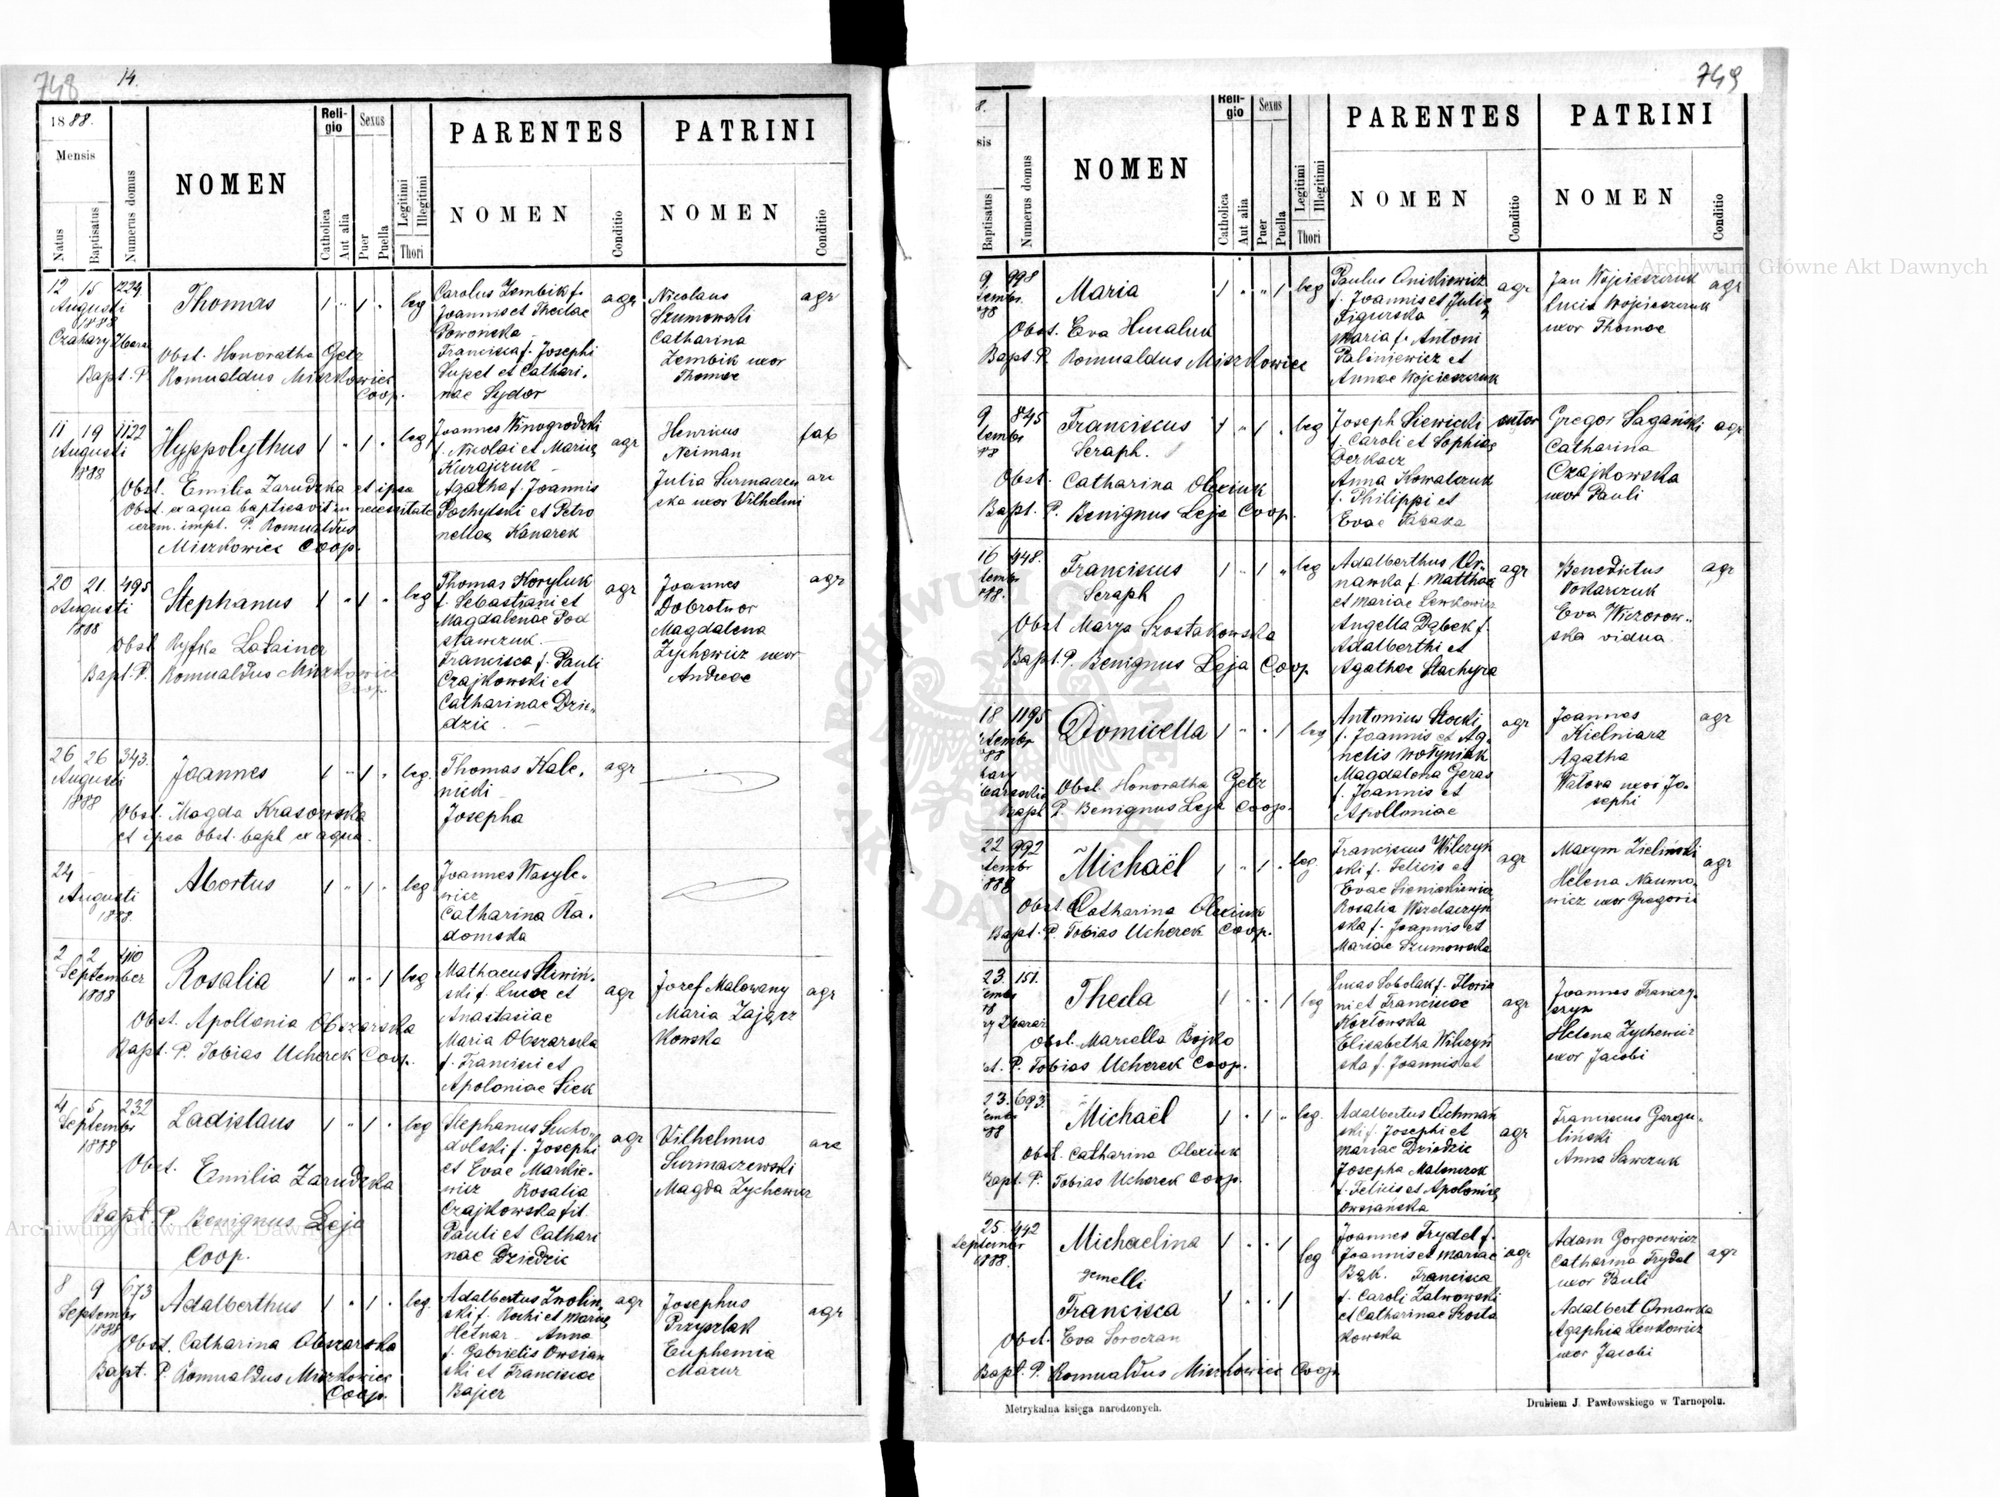 748
14.
1888.
Mensis
Natus
Baptisatus
Numerus domus
NOMEN
Religio
Catholica
Aut alia
Sexus
Puer
Puella
Legitimi
Illegitimi
Thori
PARENTES
NOMEN
Conditio
PATRINI
NOMEN
Conditio
12 15
Augusti
1888
Thomas
1 " 1 "
leg
Carolus Zembik f.
Joannis et Theclae
Franciscaf. Josephi
Lupet et Cathari-
nae Sydor
agr
Nicolaus
Szumowski
Catharina
Zembik uxor
Thomae
agr
Obst. Honoratha Getz
Bapt. P. Romualdus Miszkowicz
Coop.
11 19 1122
Augusti
1888
Hyppolythus
1 " 1 "
leg
Joannes Winogrodzki
f. Nicolai et Mariae
Kurajczuk
Agatha f. Joannis
et Petro
nellae Kanarek
agr
Henricus
Neiman
Julia
ska uxor Vilhelmi
Obst. Emilia Zarudzka et ipsa
Obst. ex aqua baptisavit in necessitate
cerem. impl. P. Romualdus
Miszkowicz Coop.
20 21 495
Augusti
1888
Stephanus
1 " 1 "
leg
Thomas Koryluk
f. Sebastiani et
Magdalenae Pod
stawczuk
Francisca f. Pauli
Czajkowski et
Catharinae Dzie-
dzic
agr
Joannes
Dobrotwor
Magdalena
Zychowicz uxor
Andreae
agr
Obst Ryfka
Bapt. P. Romualdus Miszkowicz
Coop.
26 26 343.
Augusti
1888
Joannes
1 " 1 "
leg.
Thomas Kale-
niecki
Josepha
agr
Obst. Magda Krasowska
et ipsa Obst. bapt ex aqua.
24
Augusti
1888.
Abortus
1 " 1 "
leg
Joannes Wasyle-
wicz
Catharina Ra-
domska
2 2 410
September
1888
Rosalia
1 " " 1
leg
Mathaeus
ski f. Lucae et
Anastasiae
Maria Obszarska
f. Francisci et
Apoloniae Siek
agr
Jozef Malowany
Maria Zającz
kowska
agr
Obst. Apollonia Obszarska
Bapt. P. Tobias Ucherek Coop.
4 5 232
Septembr
1888
Ladislaus
1 " 1 "
leg
Stephanus Sucho-
dolski f. Josephi
et Evae Markie-
wicz Rosalia
Czajkowska fil.
Pauli et Cathari
nae Dziedzic
agr
Vilhelmus
Surmaczewski
Magda Zychowicz
Obst. Emilia Zarudzka
Bapt. P. Benignus Leja
Coop.
8 9 673
Septembr
1888
Adalberthus
1 " 1 "
leg.
Adalbertus Zwolin-
ski f. Rochi et Mariae
Hetnar Anna
f. Gabrielis Owsian
ski et Franciscae
Bajcer
agr
Josephus
Przyszlak
Euphemia
Mazur
agr
Obst. Catharina Obszarska
Bapt. P. Romualdus Miszkowicz
Coop.
749
8.
sis
Baptisatus
Numerus domus
NOMEN
Religio
Catholica
Aut alia
Sexus
Puer
Puella
Legitimi
Illegitimi
Thori
PARENTES
NOMEN
Conditio
PATRINI
NOMEN
Conditio
9 998
Maria
1 " " 1
leg
Paulus
f. Joannis et Juliae
Figurska
Maria f. Antoni
Paliniewicz et
Annae Wojcieszczuk
agr
Jan Wojcieszczuk
Lucia Wojcieszczuk
uxor Thomae
agr
Obst. Eva
Bapt. P. Romualdus Miszkowicz
9 845
Franciscus
Seraph.
1 " 1 "
leg
Joseph Siewicki
f. Caroli et Sophiae
Derkacz
Anna Kowalczuk
f. Philippi et
Evae
sutor
Gregor Sagański
Catharina
Czajkowska
uxor Pauli
agr
Obst. Catharina Olexiuk
Bapt. P. Benignus Leja Coop.
16 448.
Franciscus
Seraph
1 " 1 "
leg
Adalberthus
f. Matthae
et Mariae Lewkowicz
Angella Dąbek f.
Adalberthi et
Agathae Stachyra
agr
Benedictus
Eva Wieczorow-
ska vidua
agr
Obst Marya Szostakowska
Bapt. P. Benignus Leja Coop.
18 1195
Domicella
1 " " 1
leg
Antonius Stocki
f. Joannis et Ag-
netis Wołyniak
Magdalena Geras
f. Joannis et
Apolloniae
agr
Joannes
Kielniarz
Agatha
uxor Jo-
sephi
agr
Obst. Honoratha Getz
Bapt P. Benignus Leja Coop.
22 992
Michaël
1 " 1 "
leg.
Franciscus Wilczyn
ski f. Felicis et
Evae Sienkiewicz
Rosalia
ska f. Joannis et
Mariae Szumowska
agr
Maxym Zieliński
Helena Naumo-
wicz uxor Gregorii
agr
Obst. Catharina Olexiuk
Bapt. P. Tobias Ucherek Coop.
23 151.
Thecla
1 " " 1
leg
Lucas Sobolak f. Floria
ni et Franciscae
Kozłowska
Elisabetha Wilczyń
ska f. Joannis et
agr
Joannes
Helena Zychowicz
uxor Jacobi
Obst. Marcella Bojko
P. Tobias Ucherek Coop.
23. 693.
Michaël
1 " 1 "
leg.
Adalbertus
ski f. Josephi et
Mariae Dziedzic
Josepha
f. Felicis et Apoloniae
Owsiańska
agr
Franciscus Gargu-
liński
Anna Sawczuk
Obst. Catharina Olexiuk
Bapt. P. Tobias Ucherek Coop.
25 442
September
1888.
Michaelina
gemelli
Francisca
1 " " 1
1 " " 1
leg
Joannes Frydel f.
Joannis et Mariae
Bąk. Francisca
f. Caroli Zalwowski
et Catharinae Szosta
kowska
agr
Adam Gorgorewicz
Catharina Frydel
uxor Pauli
Adalbert
Agaphia Lewkowicz
uxor Jacobi
agr
Obst. Eva Soroczan
Bapt. P. Romualdus Miszkowicz Coop
Metrykalna księga narodzonych.
Drukiem J. Pawłowskiego w Tarnopolu.
Archiwum Główne Akt Dawnych
Archiwum Główne Akt Dawnych
ARCHIWUM GŁÓWNE AKT DAWNYCH